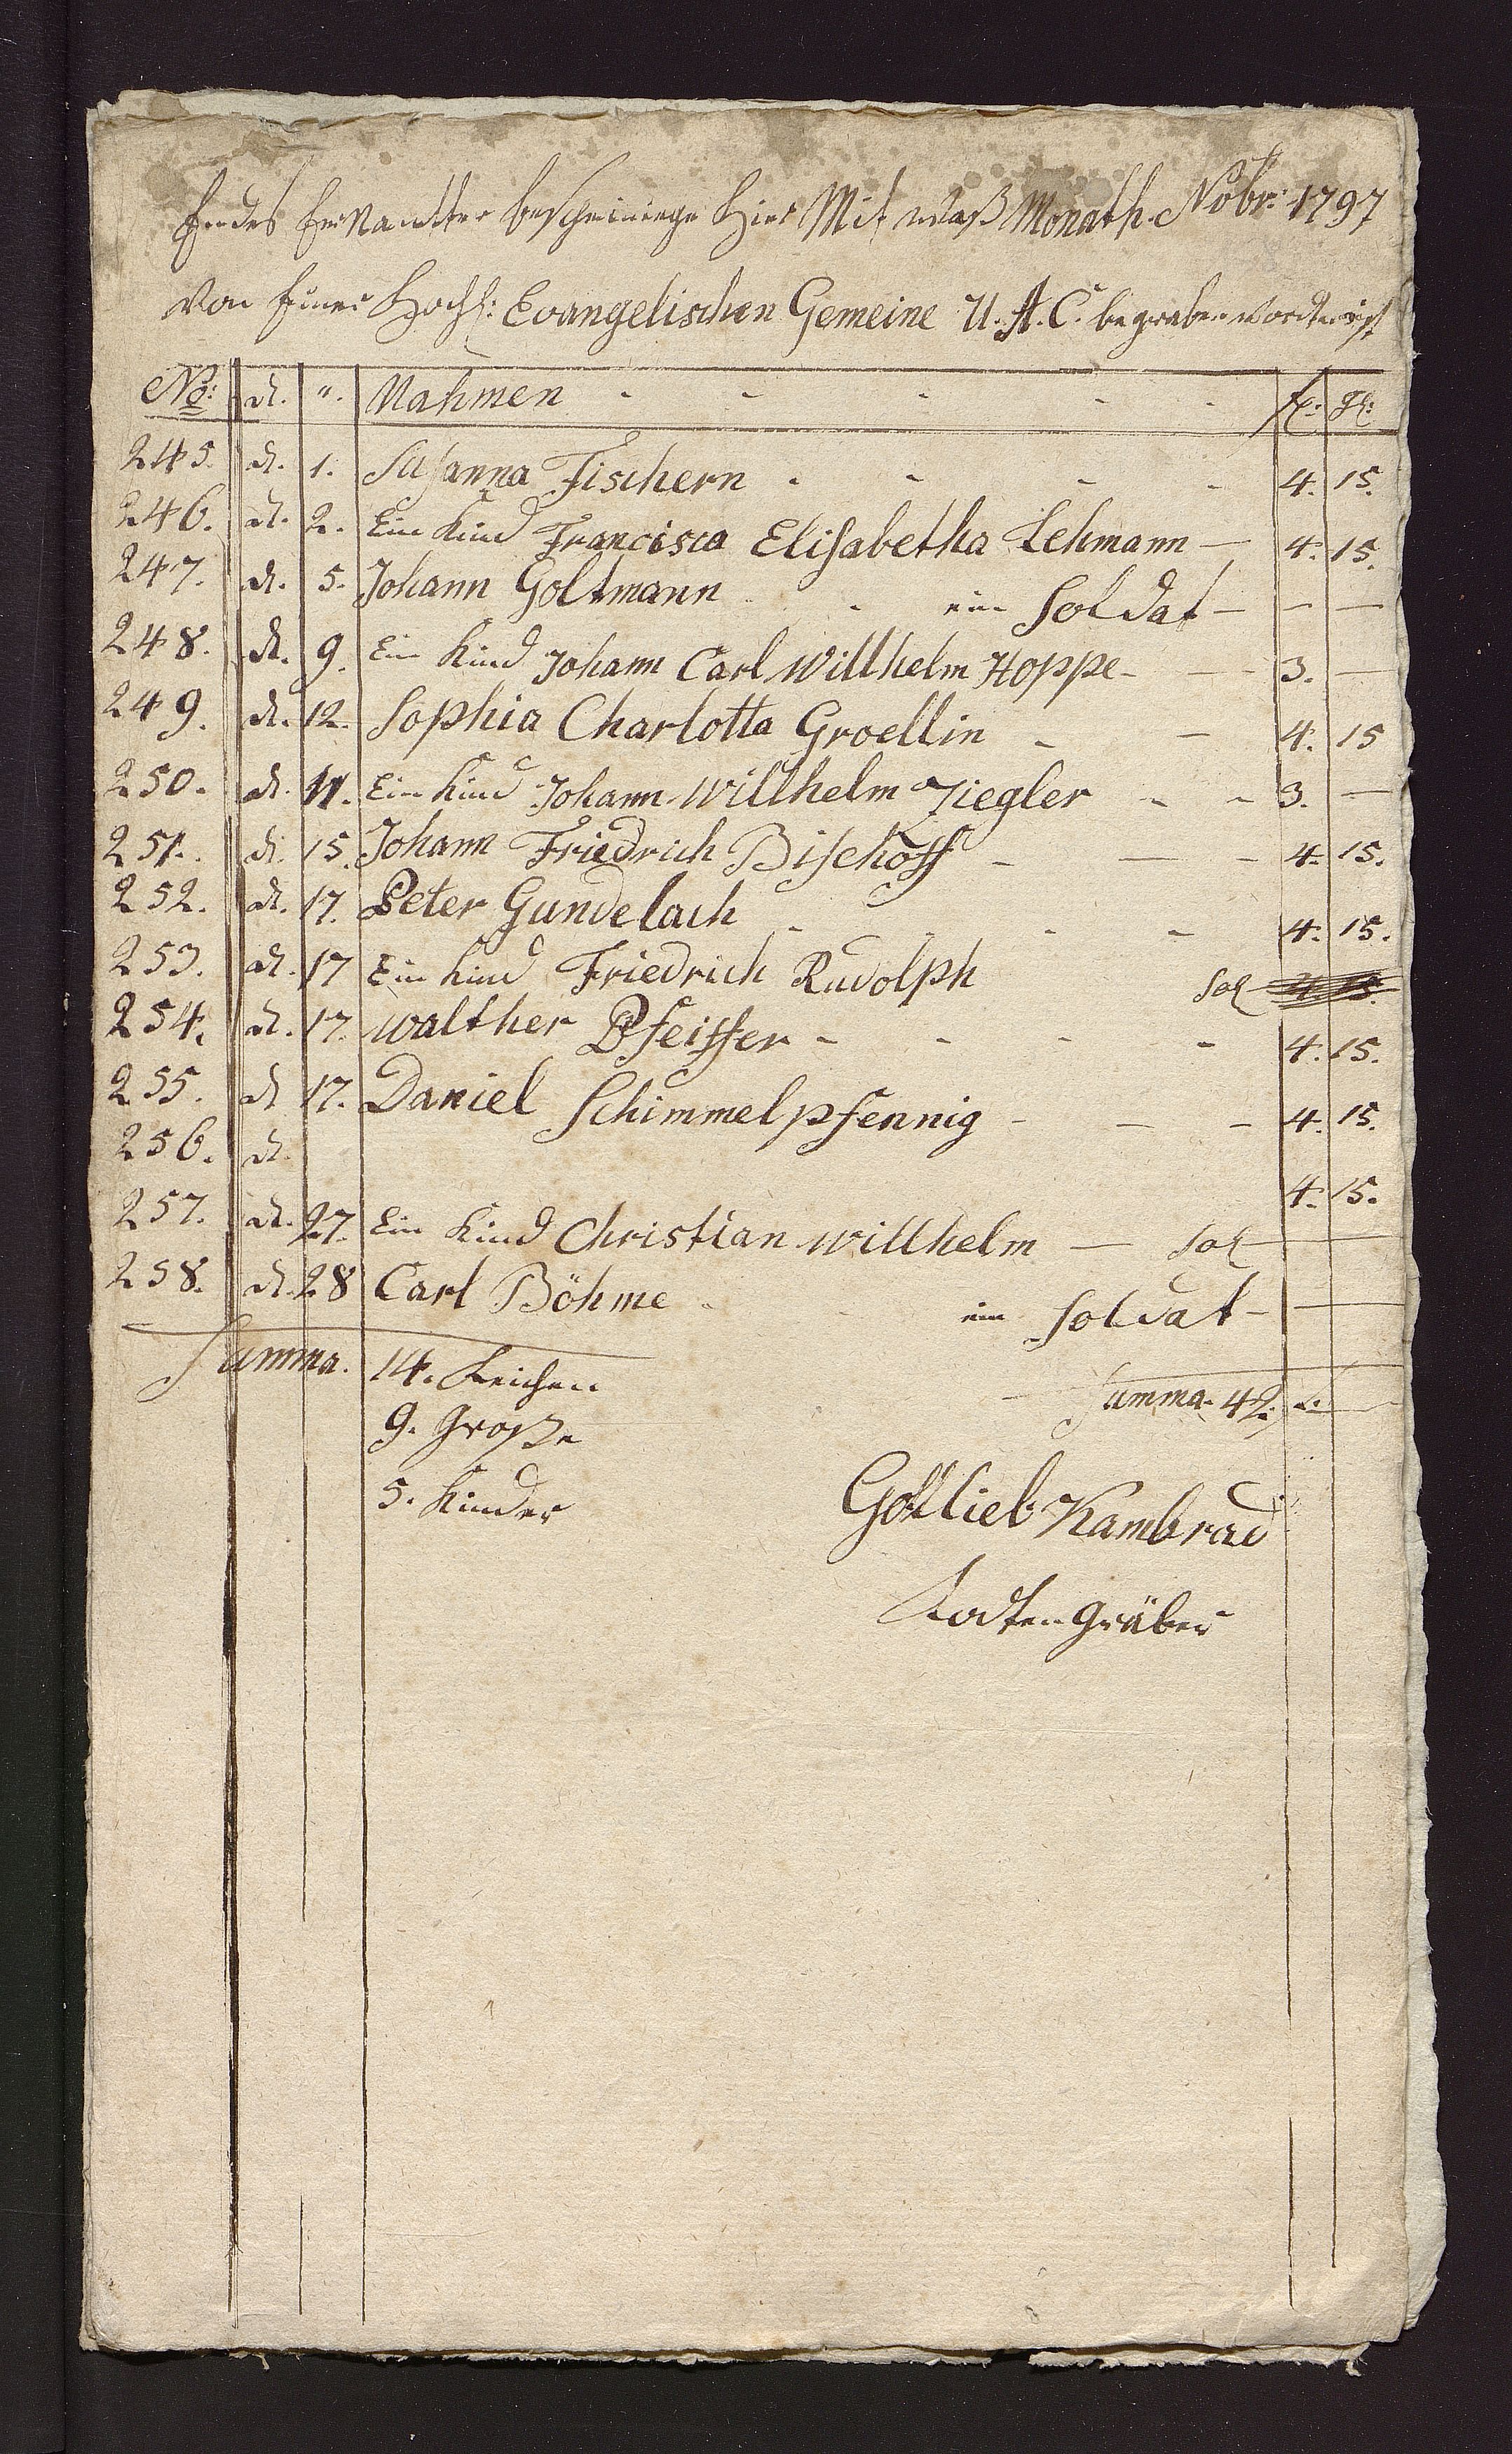 Endes Ernandter bescheiniege Hier Mit waß Monath Nobr: 1797
Von Einer Hochl: Evangelischen Gemeine U. A. C. begraben worden ist
No: d. ". Nahmen - - - - - fl: gl:
245. d. 1. Susanna Fischern - - - - 4. 15.
246. d. 2. Ein Kind Francisca Elisabetha Lehmann — 4. 15.
247. d. 5. Johann Goltmann - - ein Soldat — — —
248. d. 9. Ein Kind Johann Carl Willhelm Hoppe - — 3. —
249. d. 12. Sophia Charlotta Groellin - - 4. 15
250. d. 11. Ein Kind Johann Willhelm Ziegler - - 3. —
251. d. 15. Johann Friedrich Bischoff - — - 4. 15.
252. d. 17. Peter Gundelach - - - - 4. 15.
253. d. 17 Ein Kind Friedrich Rudolph Sol 4. 15.
254. d. 17. Walther Pfeiffer - - - - 4. 15.
255. d 17. Daniel Schimmelpfennig - - - 4. 15.
256. d. 4. 15.
257. d. 27. Ein Kind Christian Willhelm — Sol — —
258. d. 28 Carl Böhme - ein Soldat — —
Summa. 14. Leichen - Summa. 42. —
9. Große
5. Kinder
Gottlieb Kambrad
Todten Gräber